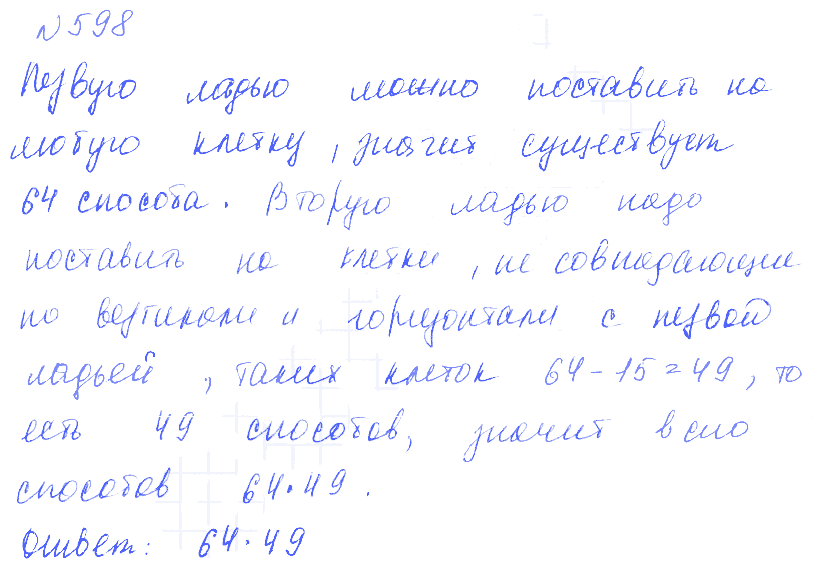 №598
Первую ладью можно поставить на
любую клетку, значит существует
64 способа. Вторую ладью надо
поставить на клетки, не совпадающие
по вертикали и горизонтали с первой
ладьей, таких клеток 64-15=49, то
есть 49 способов, значит всего
способов 64·49.
Ответ: 64·49